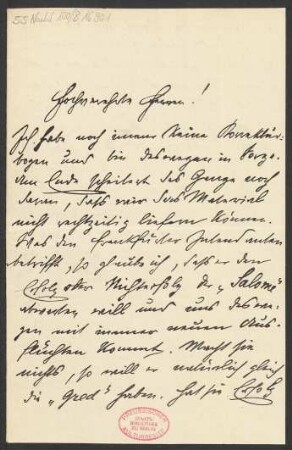 55 Nachl
Hochverehrte Herren!
Ich habe noch immer keine Korrektur-
bogen und bin deswegen in Sorge.
Am Ende scheitert das Ganze noch
daran, daß wir das Material
nicht rechtzeitig liefern können.
Was den Frankfurter Intendanten
betrifft, so glaube ich, daß er den
Erfolg oder Nichterfolg der „Salome"
abwarten will und uns deswe-
gen mit immer neuen Aus-
flüchten kommt. Macht sie
nichts, so will er natürlich gleich
die „Gred" haben. Hat sie Erfolg